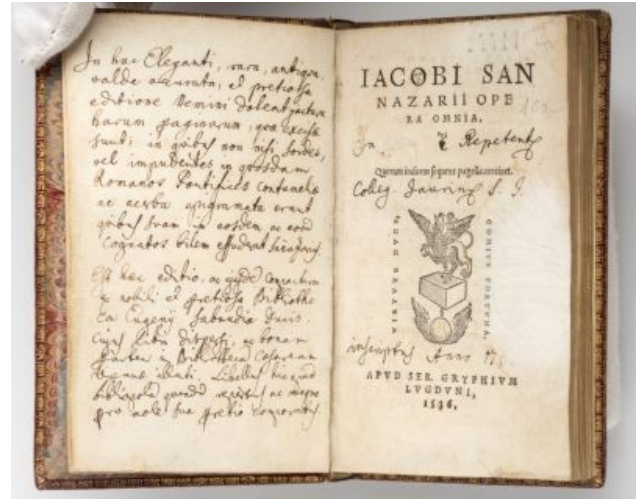 In hac Eleganti, rara, antiqua
valde accurata, et pretiosa
editione Nemini doleat jactura
harum paginarum, quæ excisæ
sunt; in quibus non nisi sordes,
vel impudentes in quosdam
Romanos Pontifices contumeliæ
ac acerba epigrammata erant
quibus suam in eosdem ac eorum
Cognatos bilem effuderat
Est hæc editio, ac
a nobili et pretiosa Bibliothe
ca Eugenij Sabaudiæ Ducis.
Cujus libri dispersi, ac bonam
partem in Bibliotheca Cæsarea
Viennæ illati. Libellus hic apud
bibliopolam quemdam repertus ac magno
pro mole sua pretio comparatus.
IACOBI SAN
NAZARII OPE
RA OMNIA,
In Repetent
Quorum indicem sequens pagella continet.
Colleg. Jaurin S. J.
VIRTVTE DVCE,
COMITE FORTVNA,
inscriptus Anno 17
APVD SEB. GRYPHIVM
LVGDVNI,
1536,